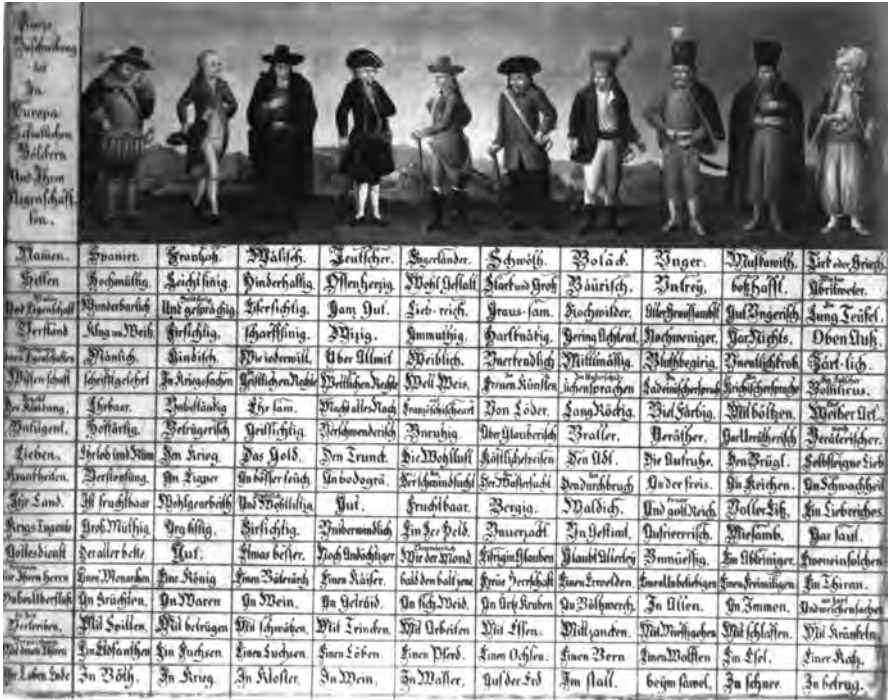 Kurze
Beschreibung
der
In
Europa
Befintlichen
Völckern
Und Ihren
Aigenschaff-
ten.
Namen. Spanier. Frantzoß. Wälisch. Teutscher. Engerländer. Schwöth. Boläck. Unger. Muskawith. Tirk oder Griech.
Sitten Hochmüttig. Leichtsinig. Hinderhaltig. Offenherzig. Wohl Gestalt. Stark und Groß Bäurisch. Untrey. boßhafft. Abrilweter.
Und Eigenschaft Wunderbarlich Und gesprächig Eifersichtig. Ganz Gut. Lieb-reich. Graus-sam. Nochwilder. Aller Grausambst. Gut Ungerisch. Lung Teüfel.
Verstand Klug un Weiß. Firsichtig. scharffsinig. Wizig. Ammuthig. Hartknäkig. Gering Achtent. Nochweniger. Gar Nichts. Oben Auß.
Eigenschaften Mänlich. Kindisch. Wie iederwill. Über Allmit Weiblich. Unerkendlich Mittlmässig. Bluthbegirig. Unentlichkrob Zärt-lich.
Wissenschaft schrifftgelehrt In Kriegssachen Geistlichen Rechte Weltlichen Rechte Welt Weis. Freuen Künsten Ladeinischersprach Krichischersprache Bolliticus.
Der Klaidung. Ehrbaar. Unbeständig Ehrsam. Macht alles Nach Französischeart Von Löder. Lang Röckig. Viel Färbig. Mit böltzen. Weiber Art.
Untugent. Hoffärtig. Betrügerisch Geilsichtig. Verschwenderisch Unruhig. Über Glauberisch Braller. Veräther. Gar Verätherisch Verätterischer.
Lieben. Ehrlob und Rum Den Krieg. Das Gold. Den Trunck. Die Wohllust Köstlichespeisen Den Adl. Die Aufruhe. Den Brügl. Selbsteigne Lieb
Krankheiten. Verstopfung. An Eigner An bößer seüch. An bodogrä. Der schwindsucht Der Wassersucht Den durchbruch An der freis. An Keichen. An Schwachheit
Ihr Land. Ist fruchtbaar Wohlgearbeith Und Wohllistig Gut. Fruchtbaar. Bergig. Waldich. Und gold Reich. Voller Eiß. Ein Lieberiches
Krigs Tugente Groß Müthig. Arg listig. Firsichtig. Uniberwindlich Ein See Held. Unverzacht. Un Gestimt. Aufrierrisch. Miesamb. Gar faul.
Gottesdienst Der aller beste. Gut. Etwas besser. Noch Andächtiger Wie der Mond. Eifrig in Glauben Glaubt Allerley Unmüessig. Ein Abtriniger. Eweneinsolchen
Ihren Herrn Einen Monarchen Eine König Einen Bäterärch Einen Kaiser. bald den balt jene. Freüe Herrschaft Einen Erwelden. Eine Unbeliebigen Einen Freimiligen Ein Thiran.
Haben Überfluß An Früchten. An Waren An Wein. An Geträid. An fich Weid. An Ärtz Kruben An Böltzwerch. In Allen. An Immen. Und weichen sachen
Verzeiben. Mit Spillen. Mit betrügen Mit schwätzen. Mit Trincken. Mit Arbeiten Mit Essen. Mit zancken. Mit Miessiggehen Mit schlaffen. Mit Kränkeln.
Mit denen Thiren Ein Elofanthen Ein Fuchsen. Einen Luchsen. Einen Löben Einen Pferd. Einen Ochsen. Einen Bern Einen Wolffen Ein Esel. Einer Katz.
Ihr Leben Ende In Böth. In Krieg. In Kloster. In Wein. In Wasser. Auf der Erd Im stall. beym säwel. In schnee. In betrug.